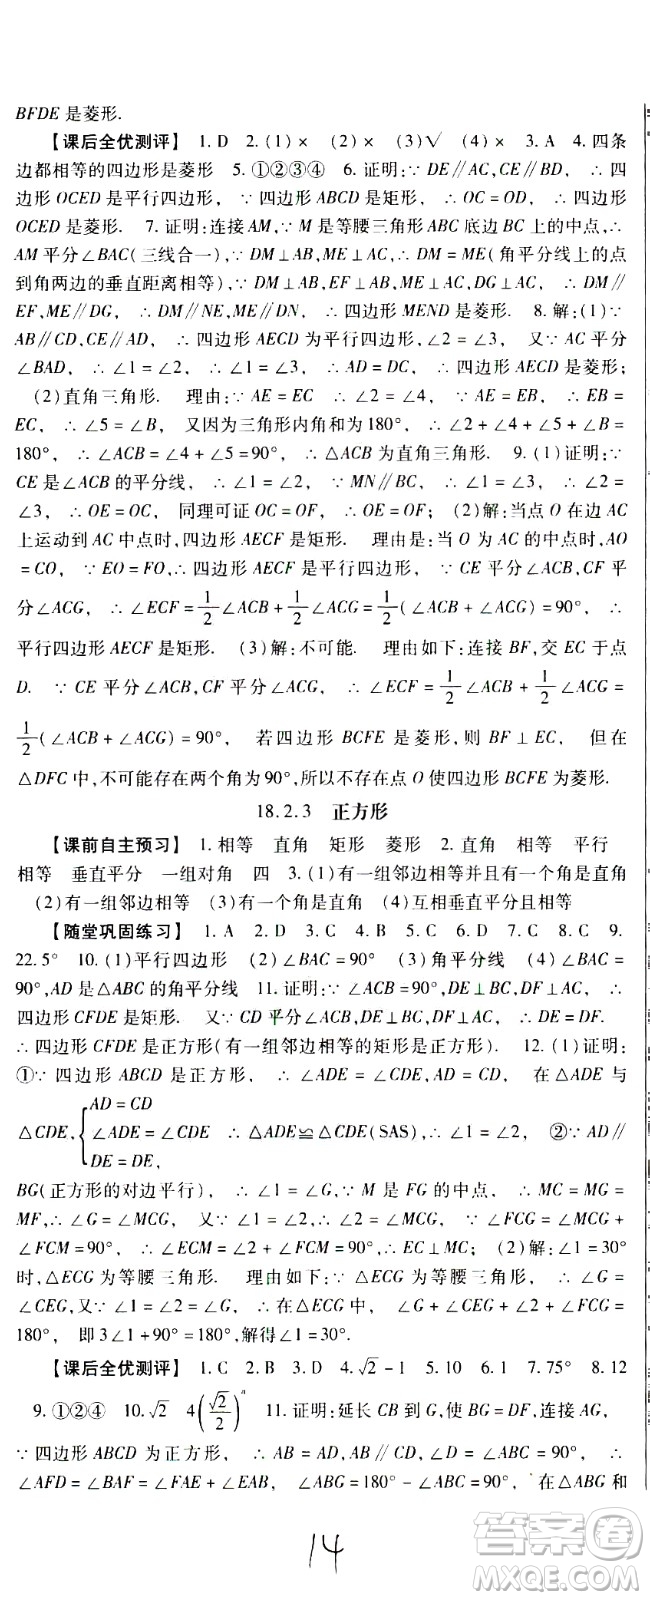 BFDE 是菱形.
【课后全优测评】 1. D 2. (1)× (2)× (3)√ 3. A 4. 四条
边都相等的四边形是菱形 5. ①②③④ 6. 证明:∵DE∥AC,CE∥BD, ∴四
边形 OCED 是平行四边形. ∵四边形 ABCD 是矩形, ∴OC=OD, ∴四边形
OCED 是菱形. 7. 证明:连接 AM,∵M 是等腰三角形 ABC 底边 BC 上的中点,∴
AM 平分∠BAC(三线合一),∵DM⊥AB,ME⊥AC, ∴DM=ME(角平分线上的点
到角两边的垂直距离相等),∵DM⊥AB,EF⊥AB,ME⊥AC,DG⊥AC, ∴DM∥
EF,ME∥DG, ∴DM∥NE,ME∥DN, ∴四边形 MEND 是菱形. 8. 解:(1)∵
AB∥CD,CE∥AD, ∴四边形 AECD 为平行四边形,∠2=∠3, 又∵AC 平分
∠BAD, ∴∠1=∠2, ∴∠1=∠3, ∴AD=DC, ∴四边形 AECD 是菱形;
(2)直角三角形. 理由:∵AE=EC ∴∠2=∠4, ∵AE=EB, ∴EB=
EC, ∴∠5=∠B, 又因为三角形内角和为 180°, ∴∠2+∠4+∠5+∠B=
180°, ∴∠ACB=∠4+∠5=90°, ∴△ACB 为直角三角形. 9. (1)证明:∵
CE 是∠ACB 的平分线, ∴∠1=∠2, ∵MN∥BC, ∴∠1=∠3, ∴∠2=
∠3, ∴OE=OC, 同理可证 OC=OF, ∴OE=OF; (2)解:当点 O 在边 AC
上运动到 AC 中点时,四边形 AECF 是矩形. 理由是:当 O 为 AC 的中点时,AO
=CO, ∵EO=FO,∴四边形 AECF 是平行四边形, ∵CE 平分∠ACB,CF 平
分∠ACG, ∴∠ECF=1/2∠ACB+1/2∠ACG=1/2(∠ACB+∠ACG)=90°, ∴
平行四边形 AECF 是矩形. (3)解:不可能. 理由如下:连接 BF,交 EC 于点
D. ∵CE 平分∠ACB,CF 平分∠ACG, ∴∠ECF=1/2∠ACB+1/2∠ACG=
1/2(∠ACB+∠ACG)=90°, 若四边形 BCFE 是菱形,则 BF⊥EC, 但在
△DFC 中,不可能存在两个角为 90°,所以不存在点 O 使四边形 BCFE 为菱形.
18.2.3 正方形
【课前自主预习】 1. 相等 直角 矩形 菱形 2. 直角 相等 平行
相等 垂直平分 一组对角 四 3. (1)有一组邻边相等并且有一个角是直角
(2)有一组邻边相等 (3)有一个角是直角 (4)互相垂直平分且相等
【随堂巩固练习】 1. A 2. D 3. D 4. B 5. C 6. B 7. C 8. C 9.
22.5° 10. (1)平行四边形 (2)∠BAC=90° (3)角平分线 (4)∠BAC=
90°,AD 是△ABC 的角平分线 11. 证明:∵∠ACB=90°,DE⊥BC,DF⊥AC, ∴
四边形 CFDE 是矩形. 又∵CD 平分∠ACB,DE⊥BC,DF⊥AC, ∴DE=DF.
∴四边形 CFDE 是正方形(有一组邻边相等的矩形是正方形). 12. (1)证明:
①∵四边形 ABCD 是正方形, ∴∠ADE=∠CDE,AD=CD, 在△ADE 与
△CDE,{AD=CD ∠ADE=∠CDE DE=DE, ∴△ADE≌△CDE(SAS),∴∠1=∠2, ②∵AD∥
BG(正方形的对边平行), ∴∠1=∠G,∵M 是 FG 的中点, ∴MC=MG=
MF,∴∠G=∠MCG, 又∵∠1=∠2, ∴∠2=∠MCG, ∵∠FCG=∠MCG+
∠FCM=90°, ∴∠ECM=∠2+∠FCM=90°,∴EC⊥MC; (2)解:∠1=30°
时,△ECG 为等腰三角形. 理由如下:∵△ECG 为等腰三角形, ∴∠G=
∠CEG,又∵∠1=∠2,∠1=∠G, ∴在△ECG 中, ∠G+∠CEG+∠2+∠FCG=
180°, 即 3∠1+90°=180°,解得∠1=30°.
【课后全优测评】 1. C 2. B 3. D 4. √2-1 5. 5 6. 1 7. 75° 8. 12
9. ①②④ 10. √2 4(√2/2)ⁿ 11. 证明:延长 CB 到 G,使 BG=DF,连接 AG,
∵四边形 ABCD 为正方形, ∴AB=AD,AB⊥AD,∠ABC=90°,AB∥CD, ∴
∠AFD=∠BAF=∠FAE+∠EAB, ∠ABG=180°-∠ABC=90°, ∴在△ABG 和
14
答案卷
MXQE.COM